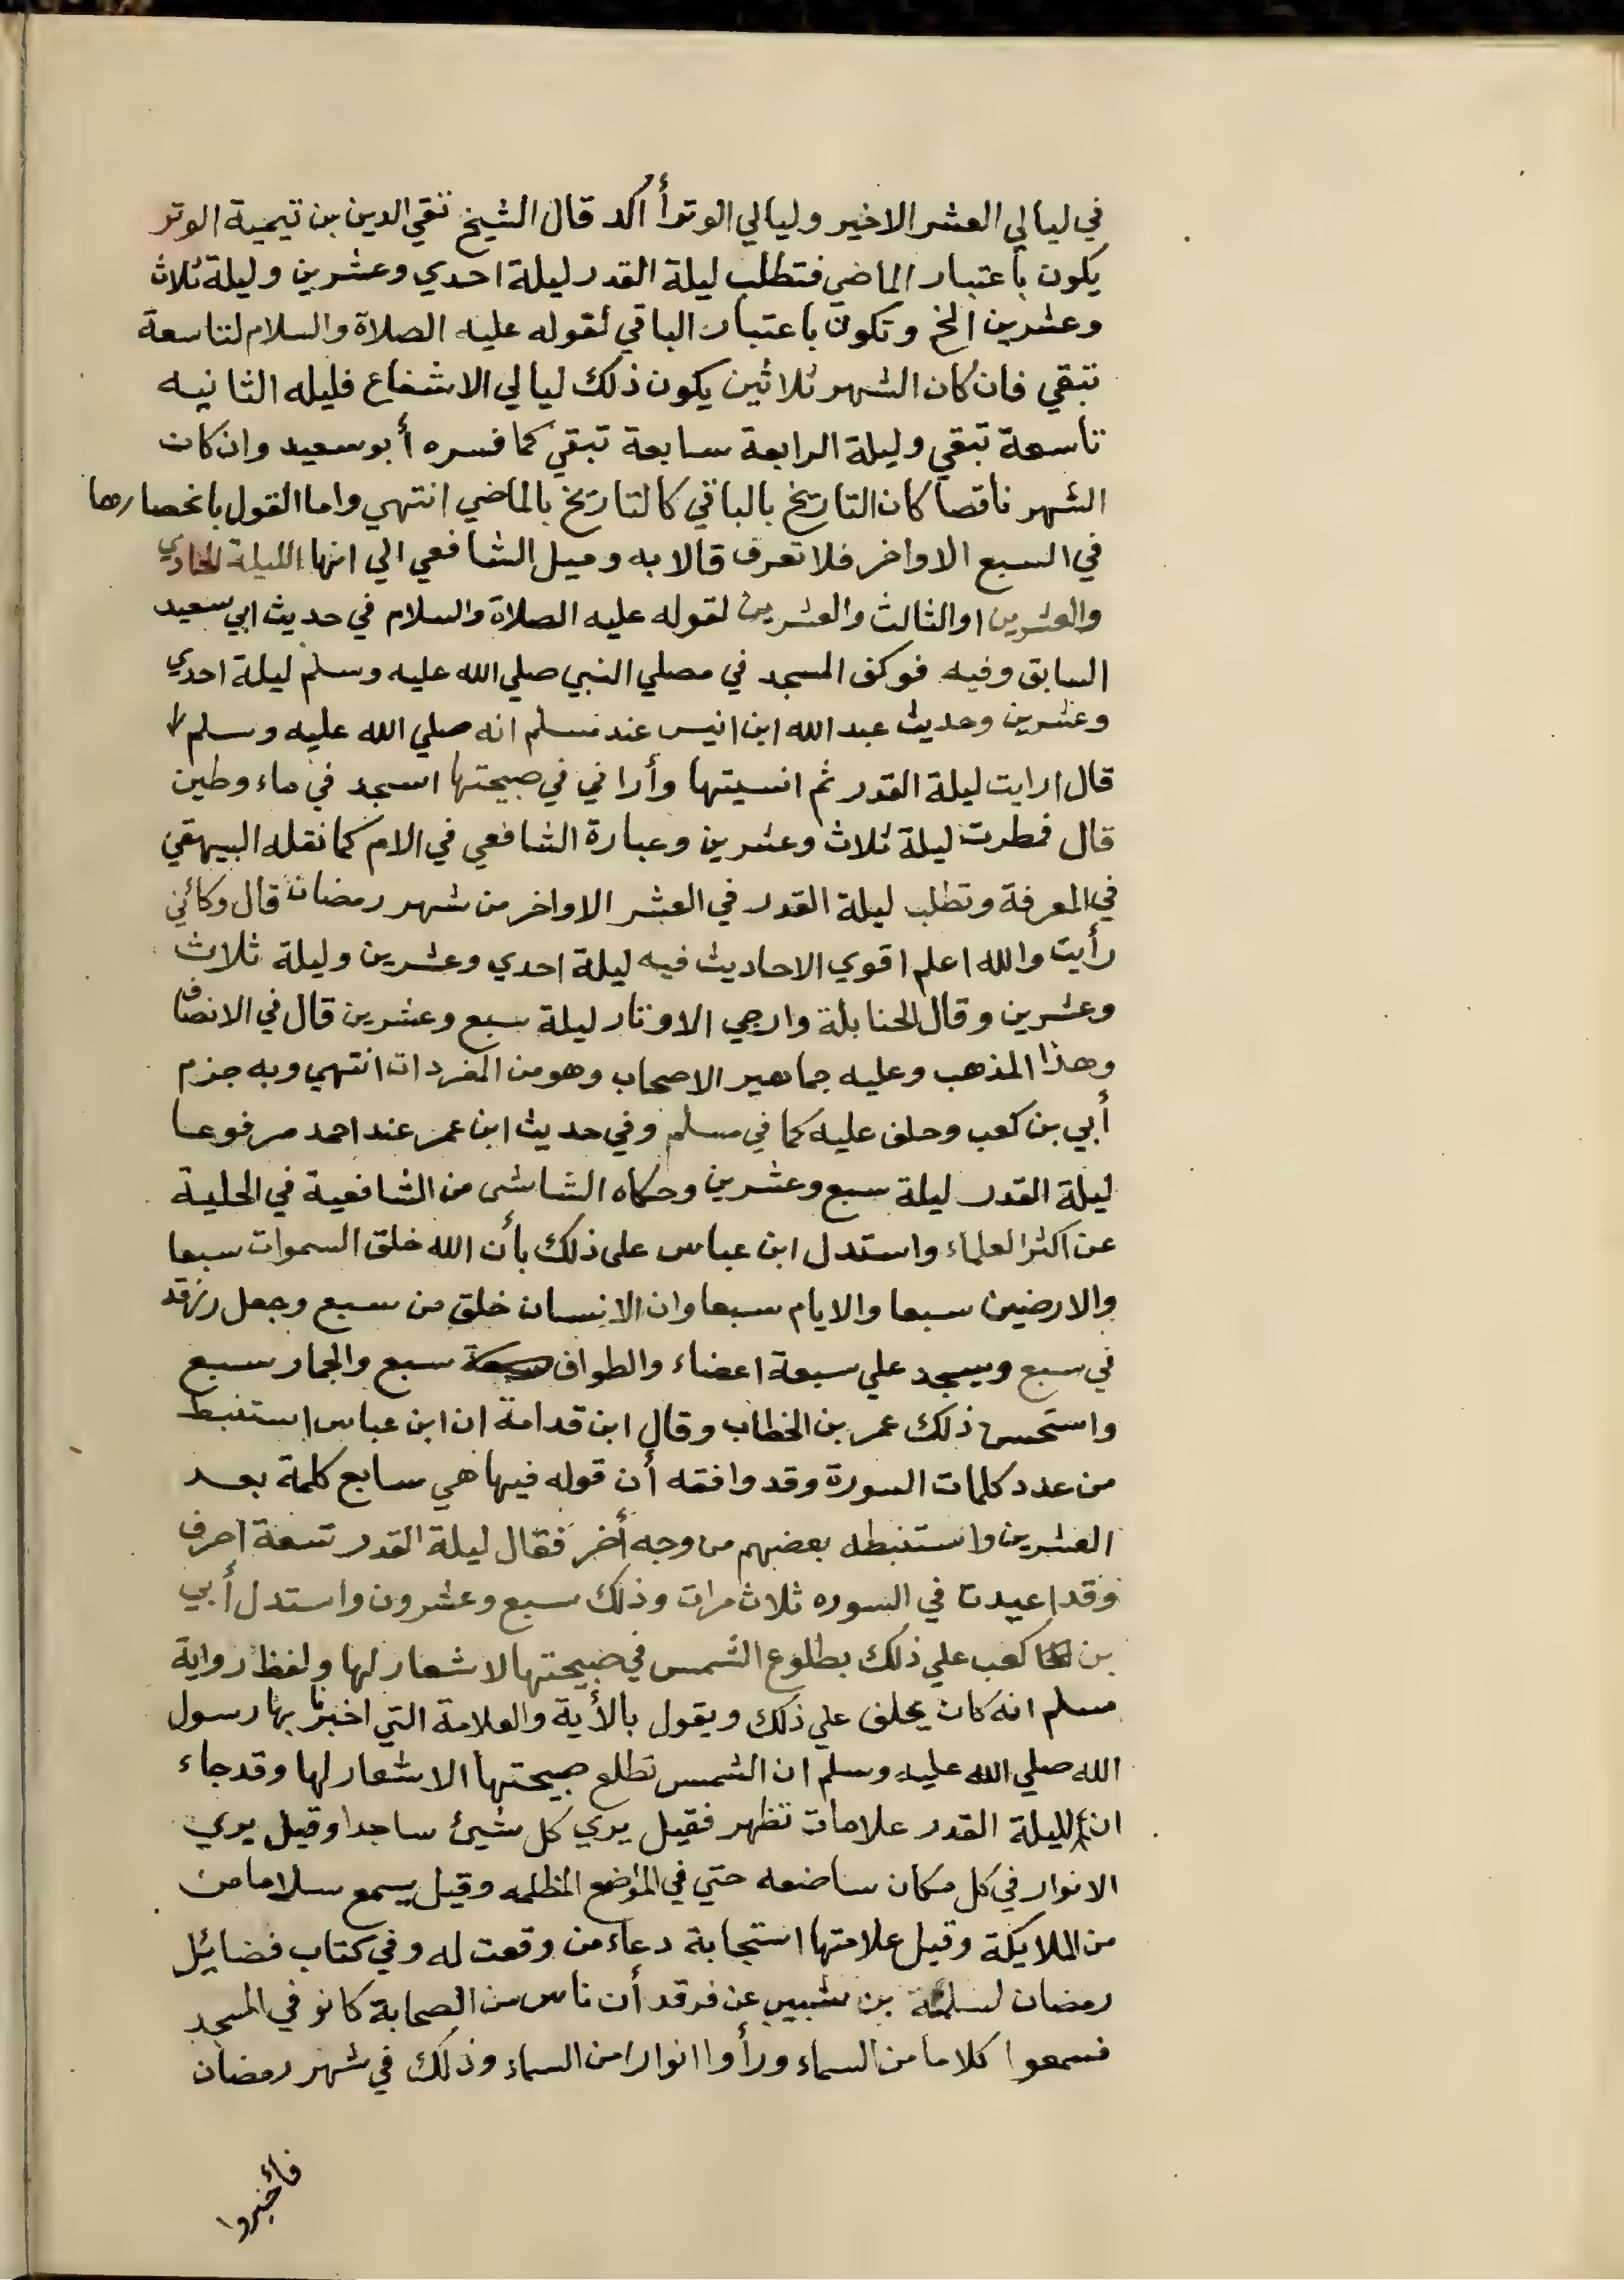 في ليالي العشر الاخير وليالي الوتر أأكد قال الشيخ تقي الدين بن تيمية الوتر
يكون باعتبار الماضي فتطلب ليلة القدر ليلة احدي وعشرين وليلة ثلاث
وعشرين الخ وتكون باعتبار الباقي لقوله عليه الصلاة والسلام لتاسعة
تبقي فان كان الشهر ثلاثين يكون ذلك ليالي الاشفاع فليله الثانيه
تاسعة تبقي وليلة الرابعة سابعة تبقي كما فسره أبو سعيد وان كان
الشهر ناقصا كان التاريخ بالباقي كالتاريخ بالماضي انتهي واما القول بانحصارها
في السبع الاواخر فلا تعرف قالا به وميل الشافعي الي انها الليلة الحادي
والعشرين او الثالث والعشرين لقوله عليه الصلاة والسلام في حديث ابي سعيد
السابق وفيه فوكف المسجد في مصلي النبي صلي الله عليه وسلم ليلة احدي
وعشرين وحديث عبد الله ابن انيس عند مسلم انه صلي الله عليه وسلم
قال ارايت ليلة القدر ثم انسيتها وأراني في صبيحتها اسجد في ماء وطين
قال فمطرت ليلة ثلاث وعشرين وعبارة الشافعي في الام كما نقله البيهقي
في المعرفة وتطلب ليلة القدر في العشر الاواخر من شهر رمضان قال وكأني
رأيت والله اعلم اقوي الاحاديث فيه ليلة احدي وعشرين وليلة ثلاث
وعشرين وقال الحنابلة وارجي الاوتار ليلة سبع وعشرين قال في الانصاف
وهذا المذهب وعليه جماهير الاصحاب وهو من المفردات انتهي وبه جزم
أبي بن كعب وحلف عليه كما في مسلم وفي حديث ابن عمر عند احمد مرفوعا
ليلة القدر ليلة سبع وعشرين وحكاه الشاشى من الشافعية في الحلية
عن اكثر العلماء واستدل ابن عباس على ذلك بأن الله خلق السموات سبعا
والارضين سبعا والايام سبعا وان الانسان خلق من سبع وجعل رزقه
في سبع ويسجد علي سبعة اعضاء والطواف سبع والجمار سبع
واستحسن ذلك عمر بن الخطاب وقال ابن قدامة ان ابن عباس استنبط
من عدد كلمات السورة وقد وافقه أن قوله فيها هي سابع كلمة بعد
العشرين واستنبطه بعضهم من وجه أخر فقال ليلة القدر تسعة احرف
وقد اعيدت في السوره ثلاث مرات وذلك سبع وعشرون واستدل أبي
بن كعب علي ذلك بطلوع الشمس في صبيحتها لا شعار لها ولفظ رواية
مسلم انه كان يحلف علي ذلك ويقول بالأية والعلامة التي اخبرنا بها رسول
الله صلي الله عليه وسلم ان الشمس تطلع صبيحتها الا شعار لها وقد جاء
ان لليلة القدر علامات تظهر فقيل يري كل شيئ ساجدا وقيل يري
الانوار في كل مكان ساضعه حتي في المواضع المظلمه وقيل يسمع سلاما من
من الملايكة وقيل علامتها استجابة دعاء من وقعت له وفي كتاب فضائيل
رمضان لسلمة بن شبيب عن فرقد أن ناس من الصحابة كانو في المسجد
فسمعوا كلاما من السماء ورأوا انوارا من السماء وذلك في شهر رمضان
فأخبروا